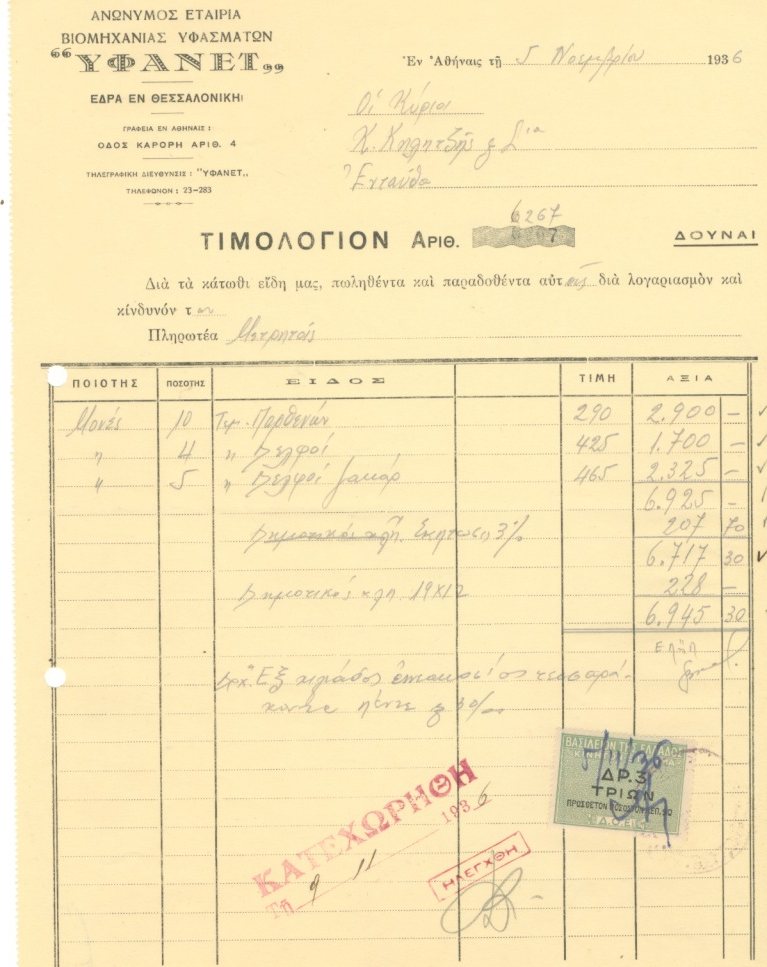 ΑΝΩΝΥΜΟΣ ΕΤΑΙΡΙΑ
ΒΙΟΜΗΧΑΝΙΑΣ ΥΦΑΣΜΑΤΩΝ
“ΥΦΑΝΕΤ„
ΕΔΡΑ ΕΝ ΘΕΣΣΑΛΟΝΙΚΗι
ΓΡΑΦΕΙΑ ΕΝ ΑΘΗΝΑΙΣ :
ΟΔΟΣ ΚΑΡΟΡΗ ΑΡΙΘ. 4
ΤΗΛΕΓΡΑΦΙΚΗ ΔΙΕΥΘΥΝΣΙΣ : "ΥΦΑΝΕΤ„
ΤΗΛΕΦΩΝΟΝ : 23-283
Ἐν Ἀθήναις τῇ 5 Νοεμβρίου 1936
Οἱ Κύριοι
Ἐνταῦθα
6267
ΤΙΜΟΛΟΓΙΟΝ ΑΡΙΘ.
ΔΟΥΝΑΙ
Διὰ τὰ κάτωθι εἴδη μας, πωληθέντα καὶ παραδοθέντα αὐτοῖς διὰ λογαριασμὸν καὶ
κίνδυνόν των
Πληρωτέα Μετρητοῖς
ΠΟΙΟΤΗΣ ΠΟΣΟΤΗΣ ΕΙΔΟΣ ΤΙΜΗ ΑΞΙΑ
10 Τεμ. Παρθενών 290 2.900 –
" 4 " Δελφοί 425 1.700 –
" 5 " Δελφοί ζακάρ 465 2.325 –
6.925 –
Ἐκπτωσις 3% 207 70
6.717 30
Δημοτικός κλπ. 19Χ12 228 –
6.945 30
Δρχ. Ἕξ χιλιάδες
πέντε & 30/00
ΒΑΣΙΛΕΙΟΝ ΤΗΣ ΕΛΛΑΔΟΣ
5/11/36
ΔΡ. 3
ΤΡΙΩΝ
ΚΑΤΕΧΩΡΗΘΗ
Τῇ 9 11 1936
ΗΛΕΓΧΘΗ